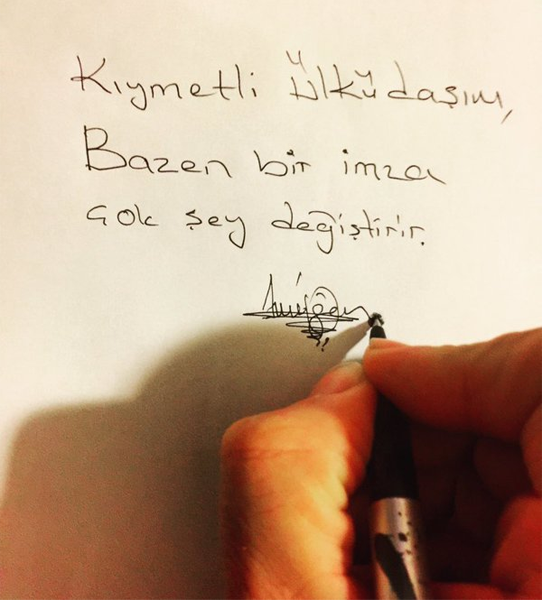 Kıymetli ülküdaşım,
Bazen bir imza
çok şey değiştirir.